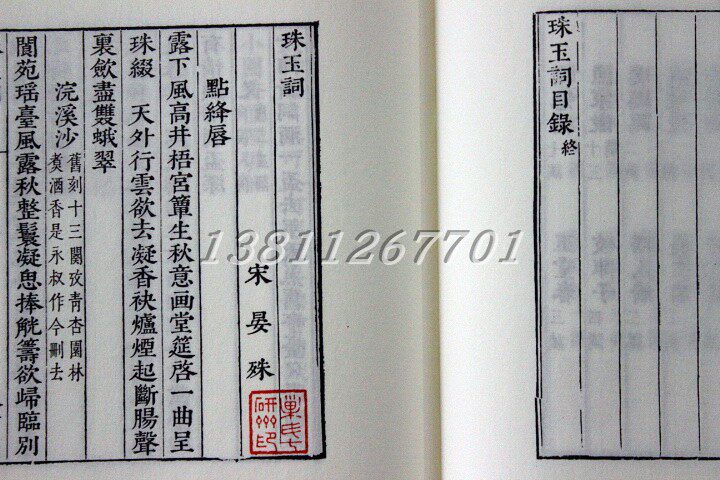 珠玉詞目錄終
珠玉詞
宋晏殊
點絳唇
露下風高井梧宮簟生秋意画堂筵啓一曲呈
珠綴　天外行雲欲去凝香袂爐煙起斷腸聲
裏斂盡雙蛾翠
浣溪沙舊刻十三闋攷青杏園林
煑酒香是永叔作今刪去
閬苑瑶臺風露秋整鬟凝思捧觥籌欲歸臨別
13811267701